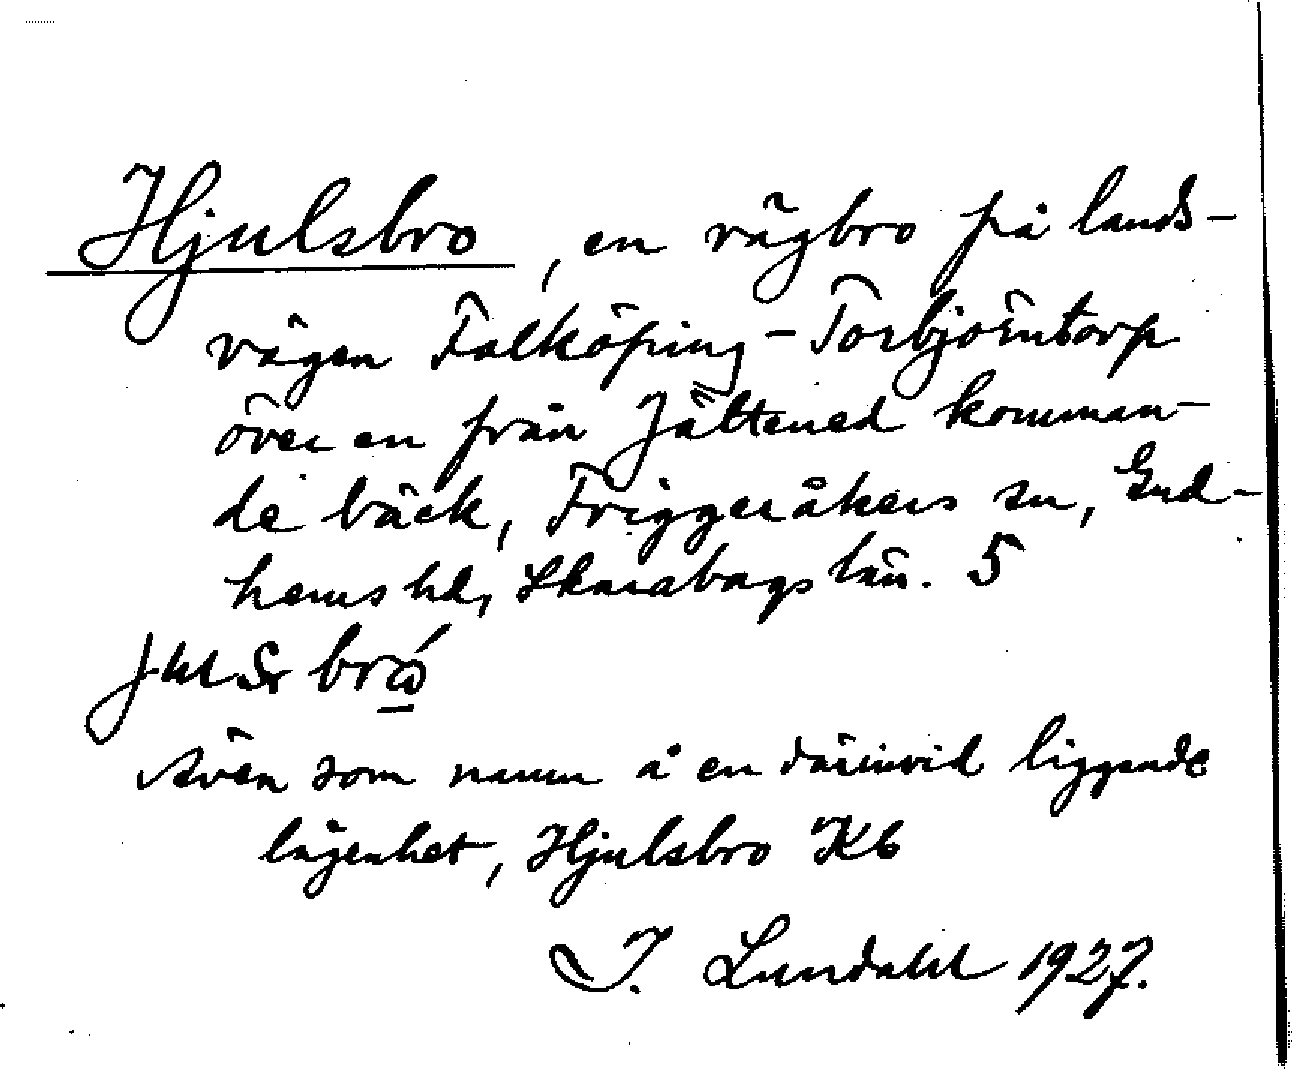 Hjulsbro, en vägbro på lands-
vägen Falköping - Torbjörntorp
över en från Jättened komman-
de bäck, Friggeråkers sn, Gud-
hems hd, Skarabogs län. 5
Även som namn å en därinvid liggande
lägenhet, Hjulsbro Kb
I. Lundahl 1927.